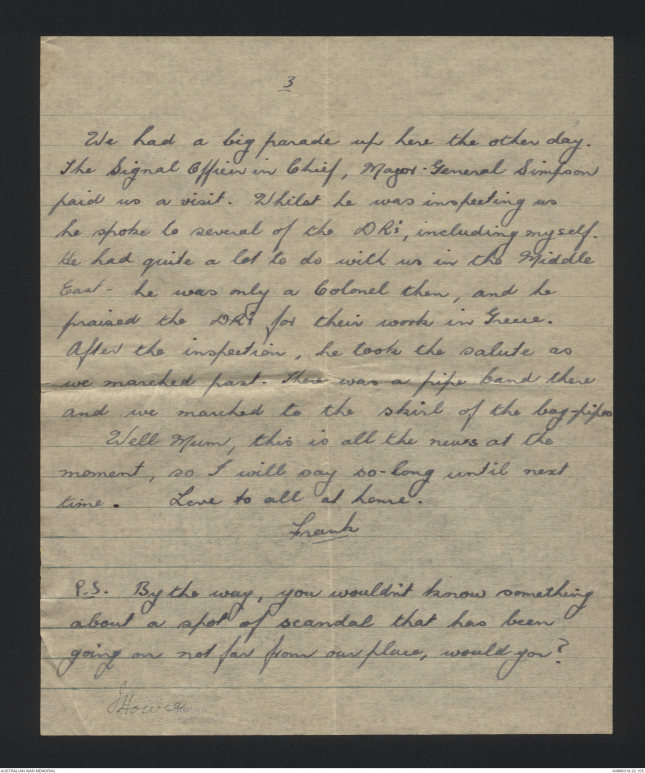 3
We had a big parade up here the other day.
The Signal Officer in Chief, Major-General Simpson
paid us a visit. Whilst he was inspecting us
he spoke to several of the DRs, including myself.
He had quite a lot to do with us in the Middle
East - he was only a Colonel then, and he
praised the DRs for their work in Greece.
After the inspection, he took the salute as
we marched past. There was a pipe band there
and we marched to the skirl of the bag-pipes
Well Mum, this is all the news at the
moment, so I will say so-long until next
time. Love to all at home.
Frank
P.S. By the way, you wouldn't know something
about a spot of scandal that has been
going on not far from our place, would you?
JHowie
AUSTRALIAN WAR MEMORIAL